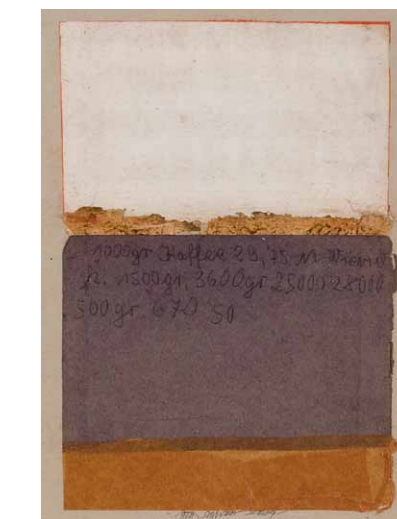 1000gr Kaffee 29,75 M Wien
p. 1500gr, 3600gr 25000 28000
500gr. 670 50